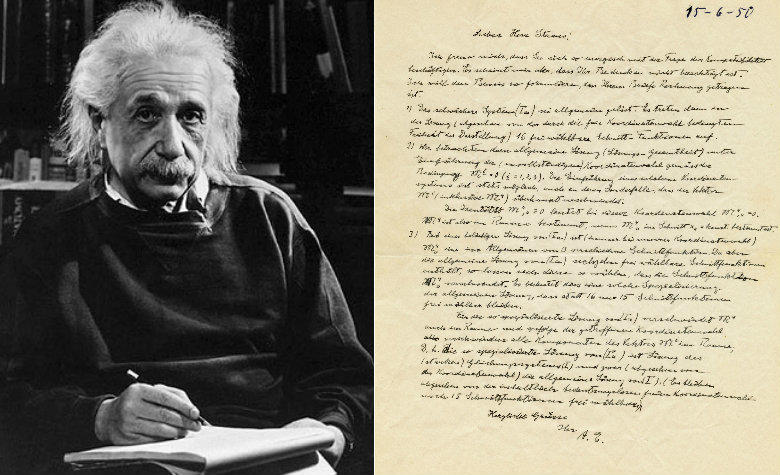 15-6-50
Lieber Herr Straus!
Ich freue mich, dass Sie sich so energisch mit der Frage der Kompatibilität
beschäftigen. Es scheint mir aber, dass Ihr Bedenken nicht berechtigt ist.
Ich will den Beweis so formulieren, dass Ihrem Briefe Rechnung getragen
ist.
1) Das schwächere System sei allgemein gelöst. Es treten dann in
der Lösung (abgesehen von der durch die freie Koordinatenwahl bedingten
Freiheit der Darstellung) 16 frei wählbare Schnitt-Funktionen auf.
2) Wir betrachten diese allgemeine Lösung (Lösungs-Gesamtheit) unter
Einführung der (unvollständigen) Koordinatenwahl gemäss der
Bedingung = 0 Die Einführung eines solchen Koordinaten-
systems ist stets möglich, auch in dem Sonderfalle, dass der Vektor
überhaupt verschwindet.
Die Identität = 0 lautet bei dieser Koordinatenwahl = 0.
ist also im Raume bestimmt, wenn im Schnitt bekannt ist.
3) Bei einer beliebigen Lösung von ist (bei unserer Koordinatenwahl)
im Allgemeinen verschiedene Schnittfunktion. Da aber
die allgemeine Lösung von sechzehn frei wählbare Schnittfunktionen
enthält, so lassen sich diese so wählen, dass die Schnittfunktion
verschwindet. Es bedeutet dies eine solche Spezialisierung
der allgemeinen Lösung, dass statt 16 nur 15 Schnittfunktionen
frei wählbar bleiben.
Für die so spezialisierte Lösung von verschwindet
auch im Raume und zufolge der getroffenen Koordinatenwahl
also verschwinden alle Komponenten des Vektors im Raume,
D. h. die so spezialisierte Lösung von ist Lösung des
(starken) Gleichungssystems und zwar (abgesehen von
der Koordinatenwahl) die allgemeine Lösung von Es bleiben
abgesehen von der inhaltlich bedeutungslosen freien Koordinatenwahl
noch 15 Schnittfunktionen frei wählbar.
Herzliche Grüsse
Ihr
A. E.